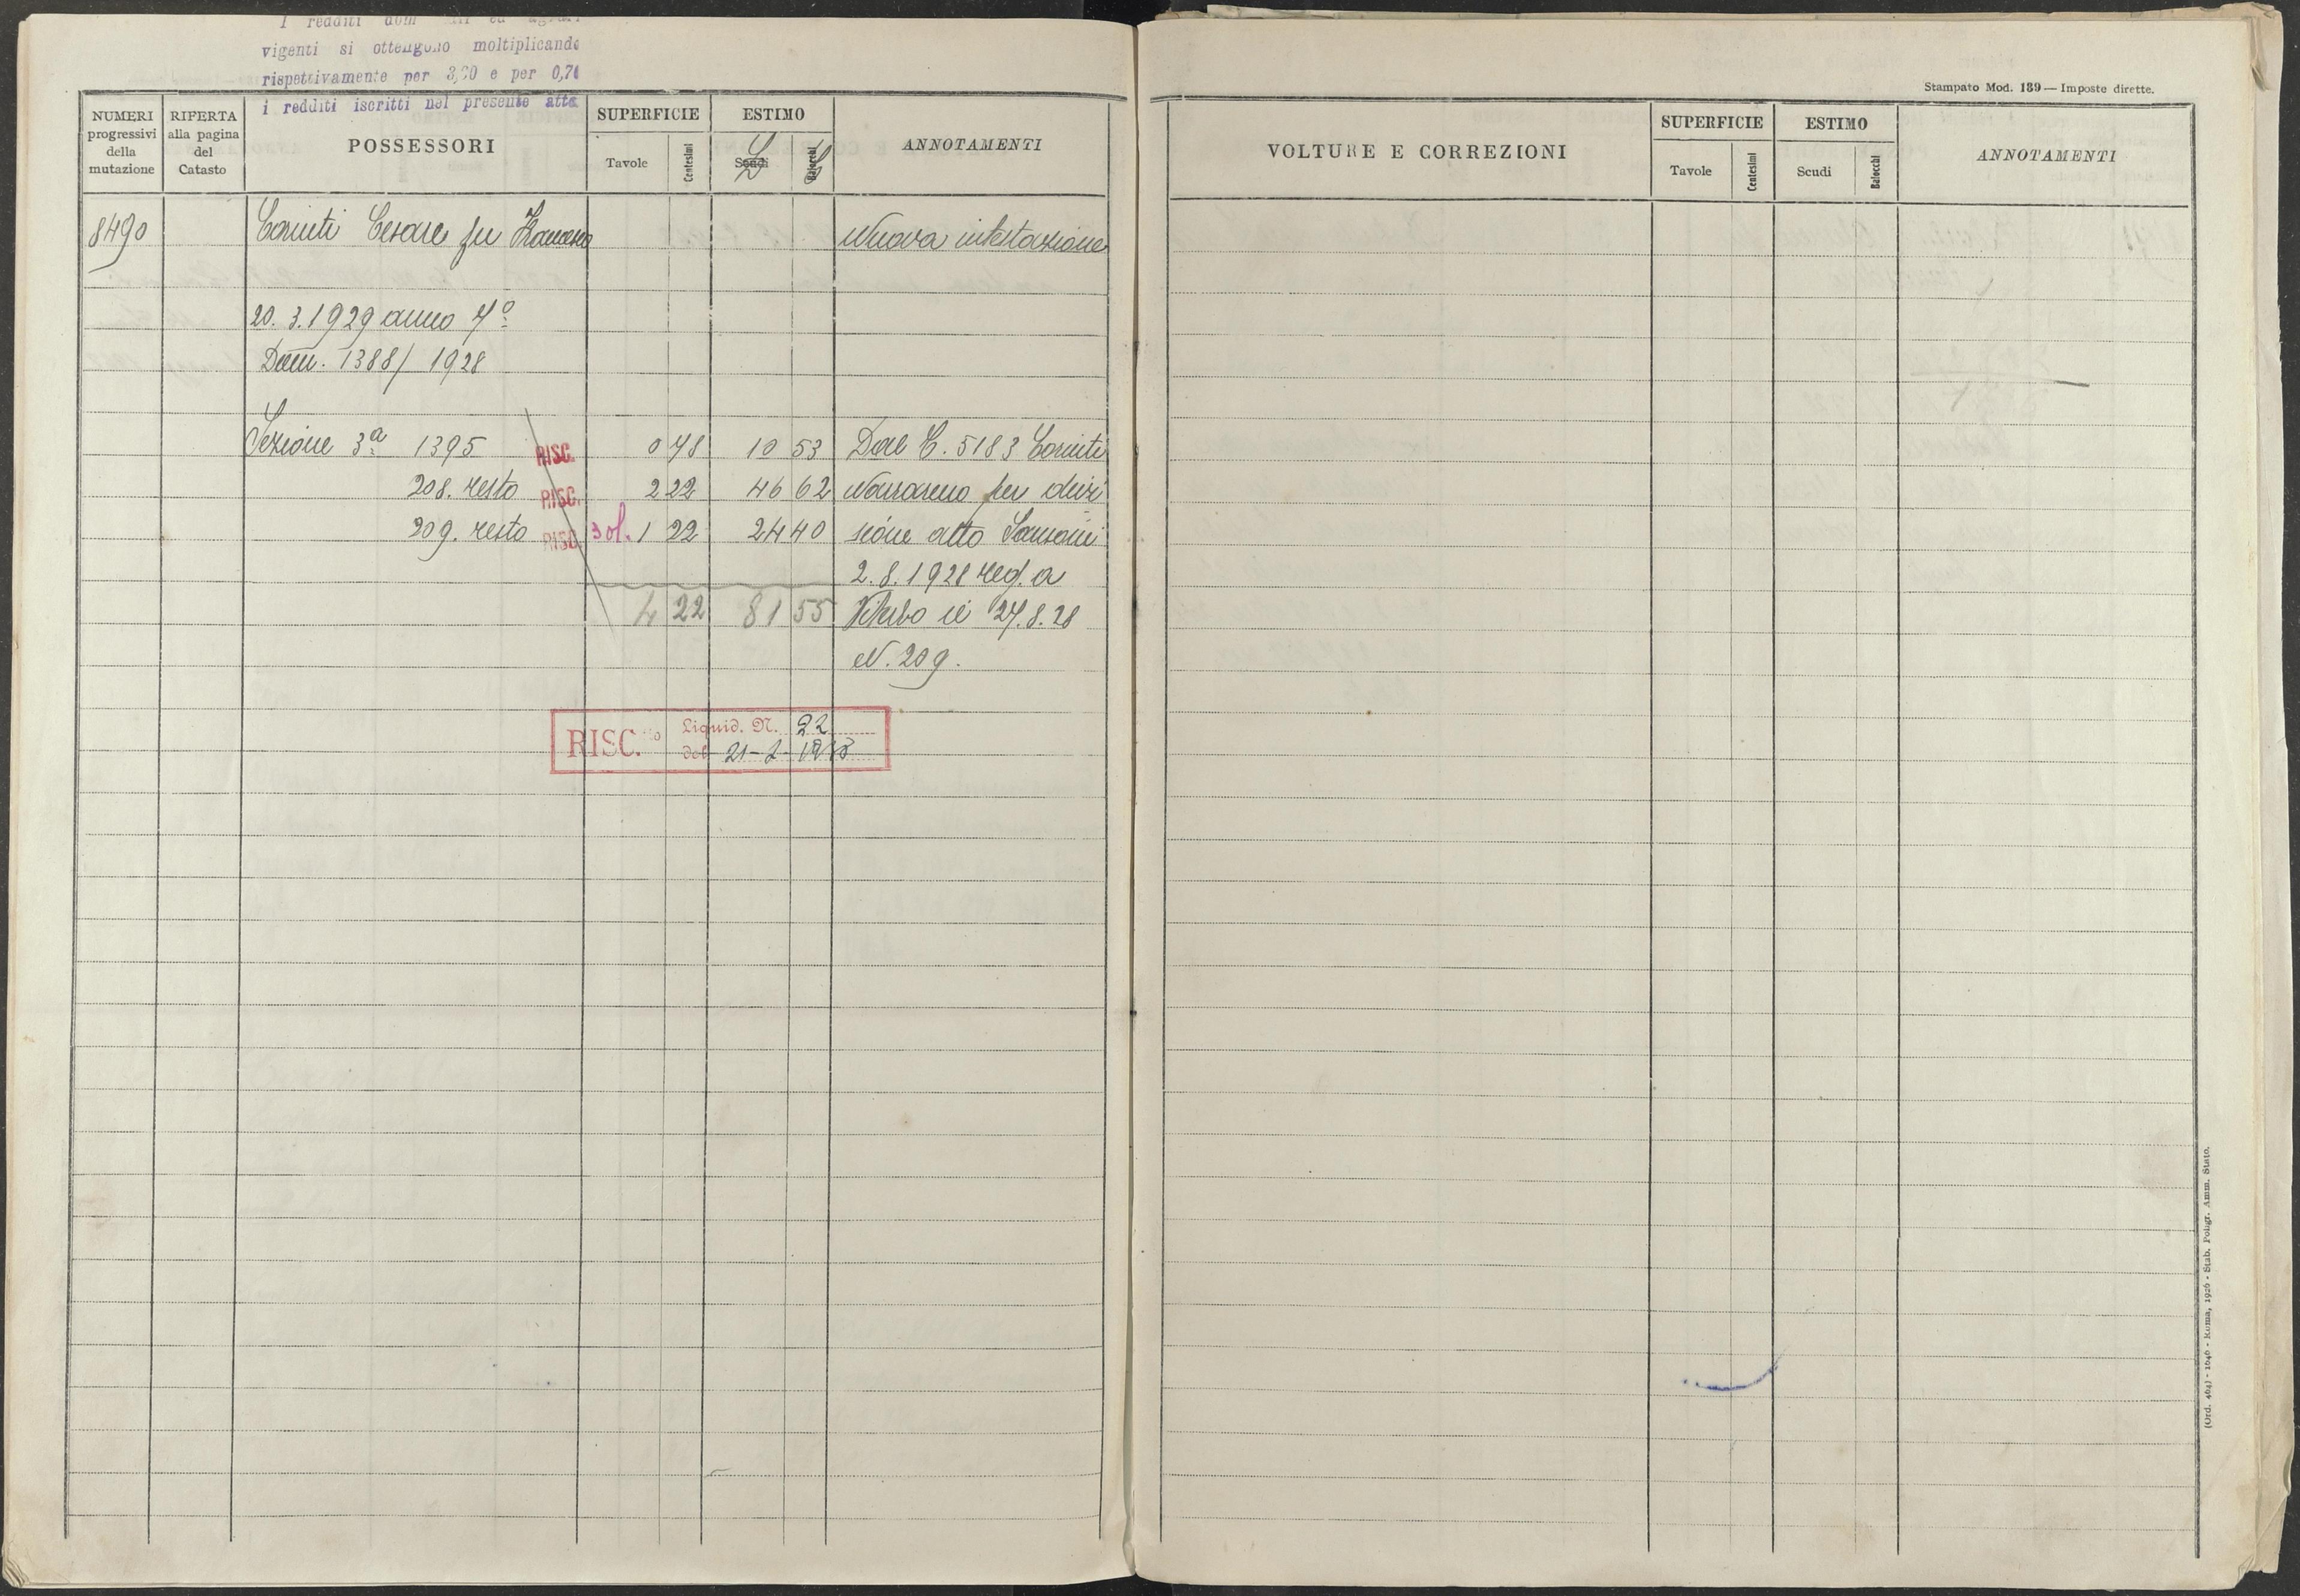 I redditi dom
vigenti si ottengono moltiplicando
rispettivamente per 3,20 e per 0,70
i redditi iscritti nel presente atto
NUMERI progressivi della mutazione
RIFERTA alla pagina del Catasto
POSSESSORI
SUPERFICIE
Tavole
Centesimi
ESTIMO
Scudi
Baiocchi
ANNOTAMENTI
8490 Cesare fu Nuova intestazione
20.3.1929 anno 7º
Dom. 1388/1928
Sezione 3ª 1395 RISC. 0 78 10 53 Dal C. 5183
208. resto RISC. 2 22 46 62 Nazareno per divi
209. resto RISC. 3 ol. 1 22 24 40 sione atto Sansoni
2.8.1928 reg. a
4 22 81 55 Viterbo il 27.8.28
N. 209.
RISC.to Liquid. N. 22
del 21-2-
Stampato Mod. 139 — Imposte dirette.
VOLTURE E CORREZIONI
SUPERFICIE
Tavole
Centesimi
ESTIMO
Scudi
Baiocchi
ANNOTAMENTI
(Ord. 464) - 1646 - Roma, 1926 - Stab. Poligr. Amm. Stato.